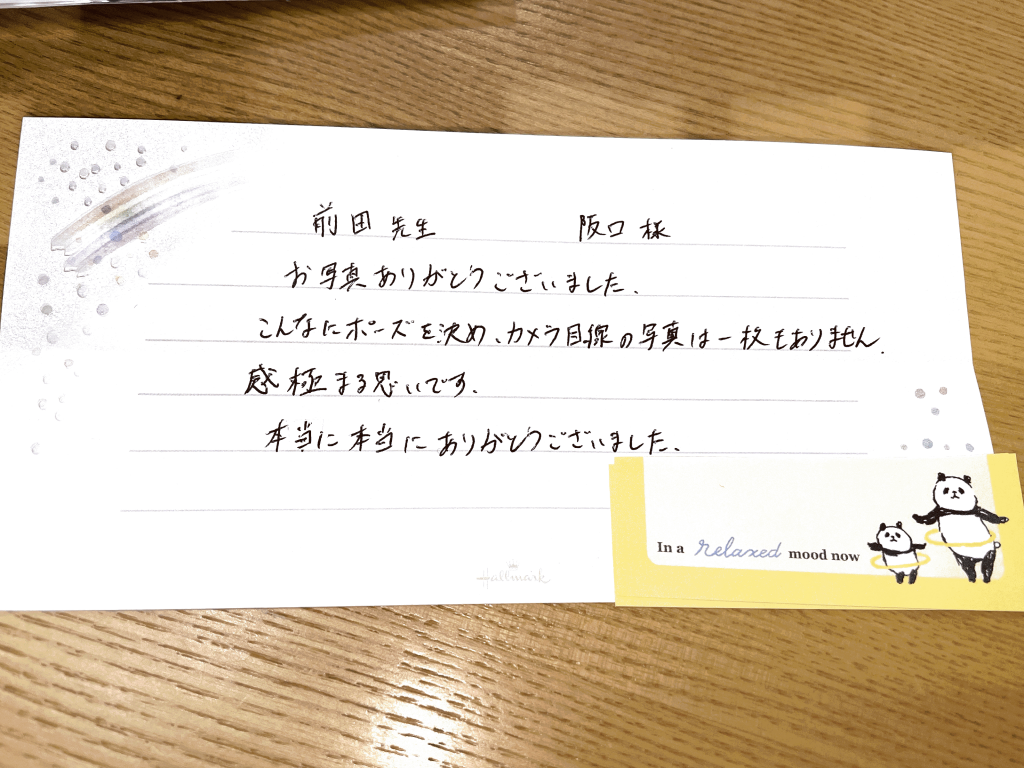 前田先生　阪口様
お写真ありがとうございました.
こんなにポーズを決め、カメラ目線の写真は一枚もありません.
感極まる思いです.
本当に本当にありがとうございました.
Hallmark
In a relaxed mood now